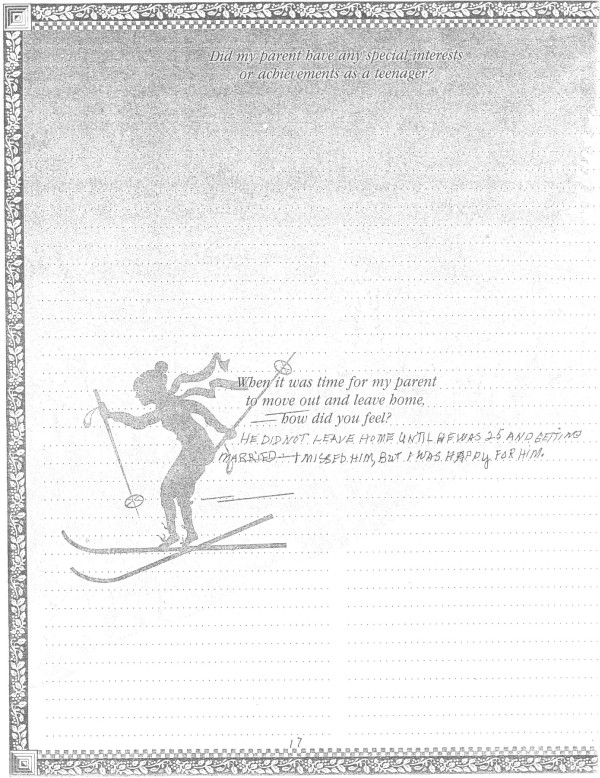 Did my parent have any special interests
or achievements as a teenager?
When it was time for my parent
to move out and leave home,
how did you feel?
HE DID NOT LEAVE HOME UNTIL HE WAS 25 AND GETTING
MARRIED — I MISSED HIM, BUT I WAS HAPPY FOR HIM.
17